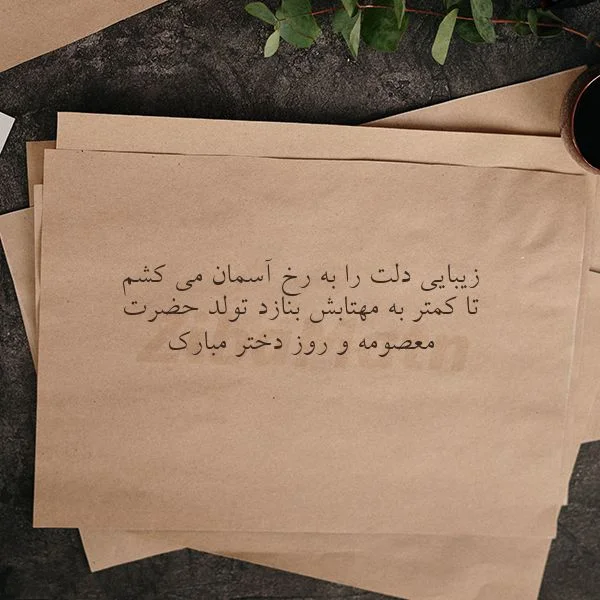 زیبایی دلت را به رخ آسمان می کشم
تا کمتر به مهتابش بنازد تولد حضرت
معصومه و روز دختر مبارک